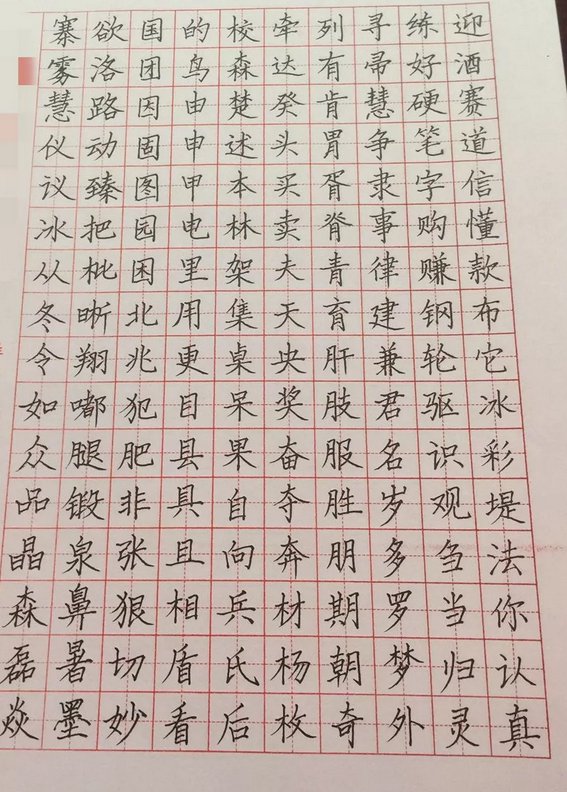 寨欲国的校牵列寻练迎
雾洛团鸟森达有帚好酒
慧路因由楚癸肯慧硬赛
仪动固申述头胃争笔道
议臻图甲本买胥隶字信
冰把园电林卖脊事购懂
从枇困里架夫青律赚款
冬晰北用集天育建钢布
令翔兆更桌央肝兼轮它
如嘟犯目呆奖肢君驱冰
众腿肥县果奋服名识彩
品锻非具自夺胜岁观堤
晶泉张且向奔朋多刍法
森鼻狠相兵材期罗当你
磊暑切盾氏杨朝梦归认
焱墨妙看后枚奇外灵真